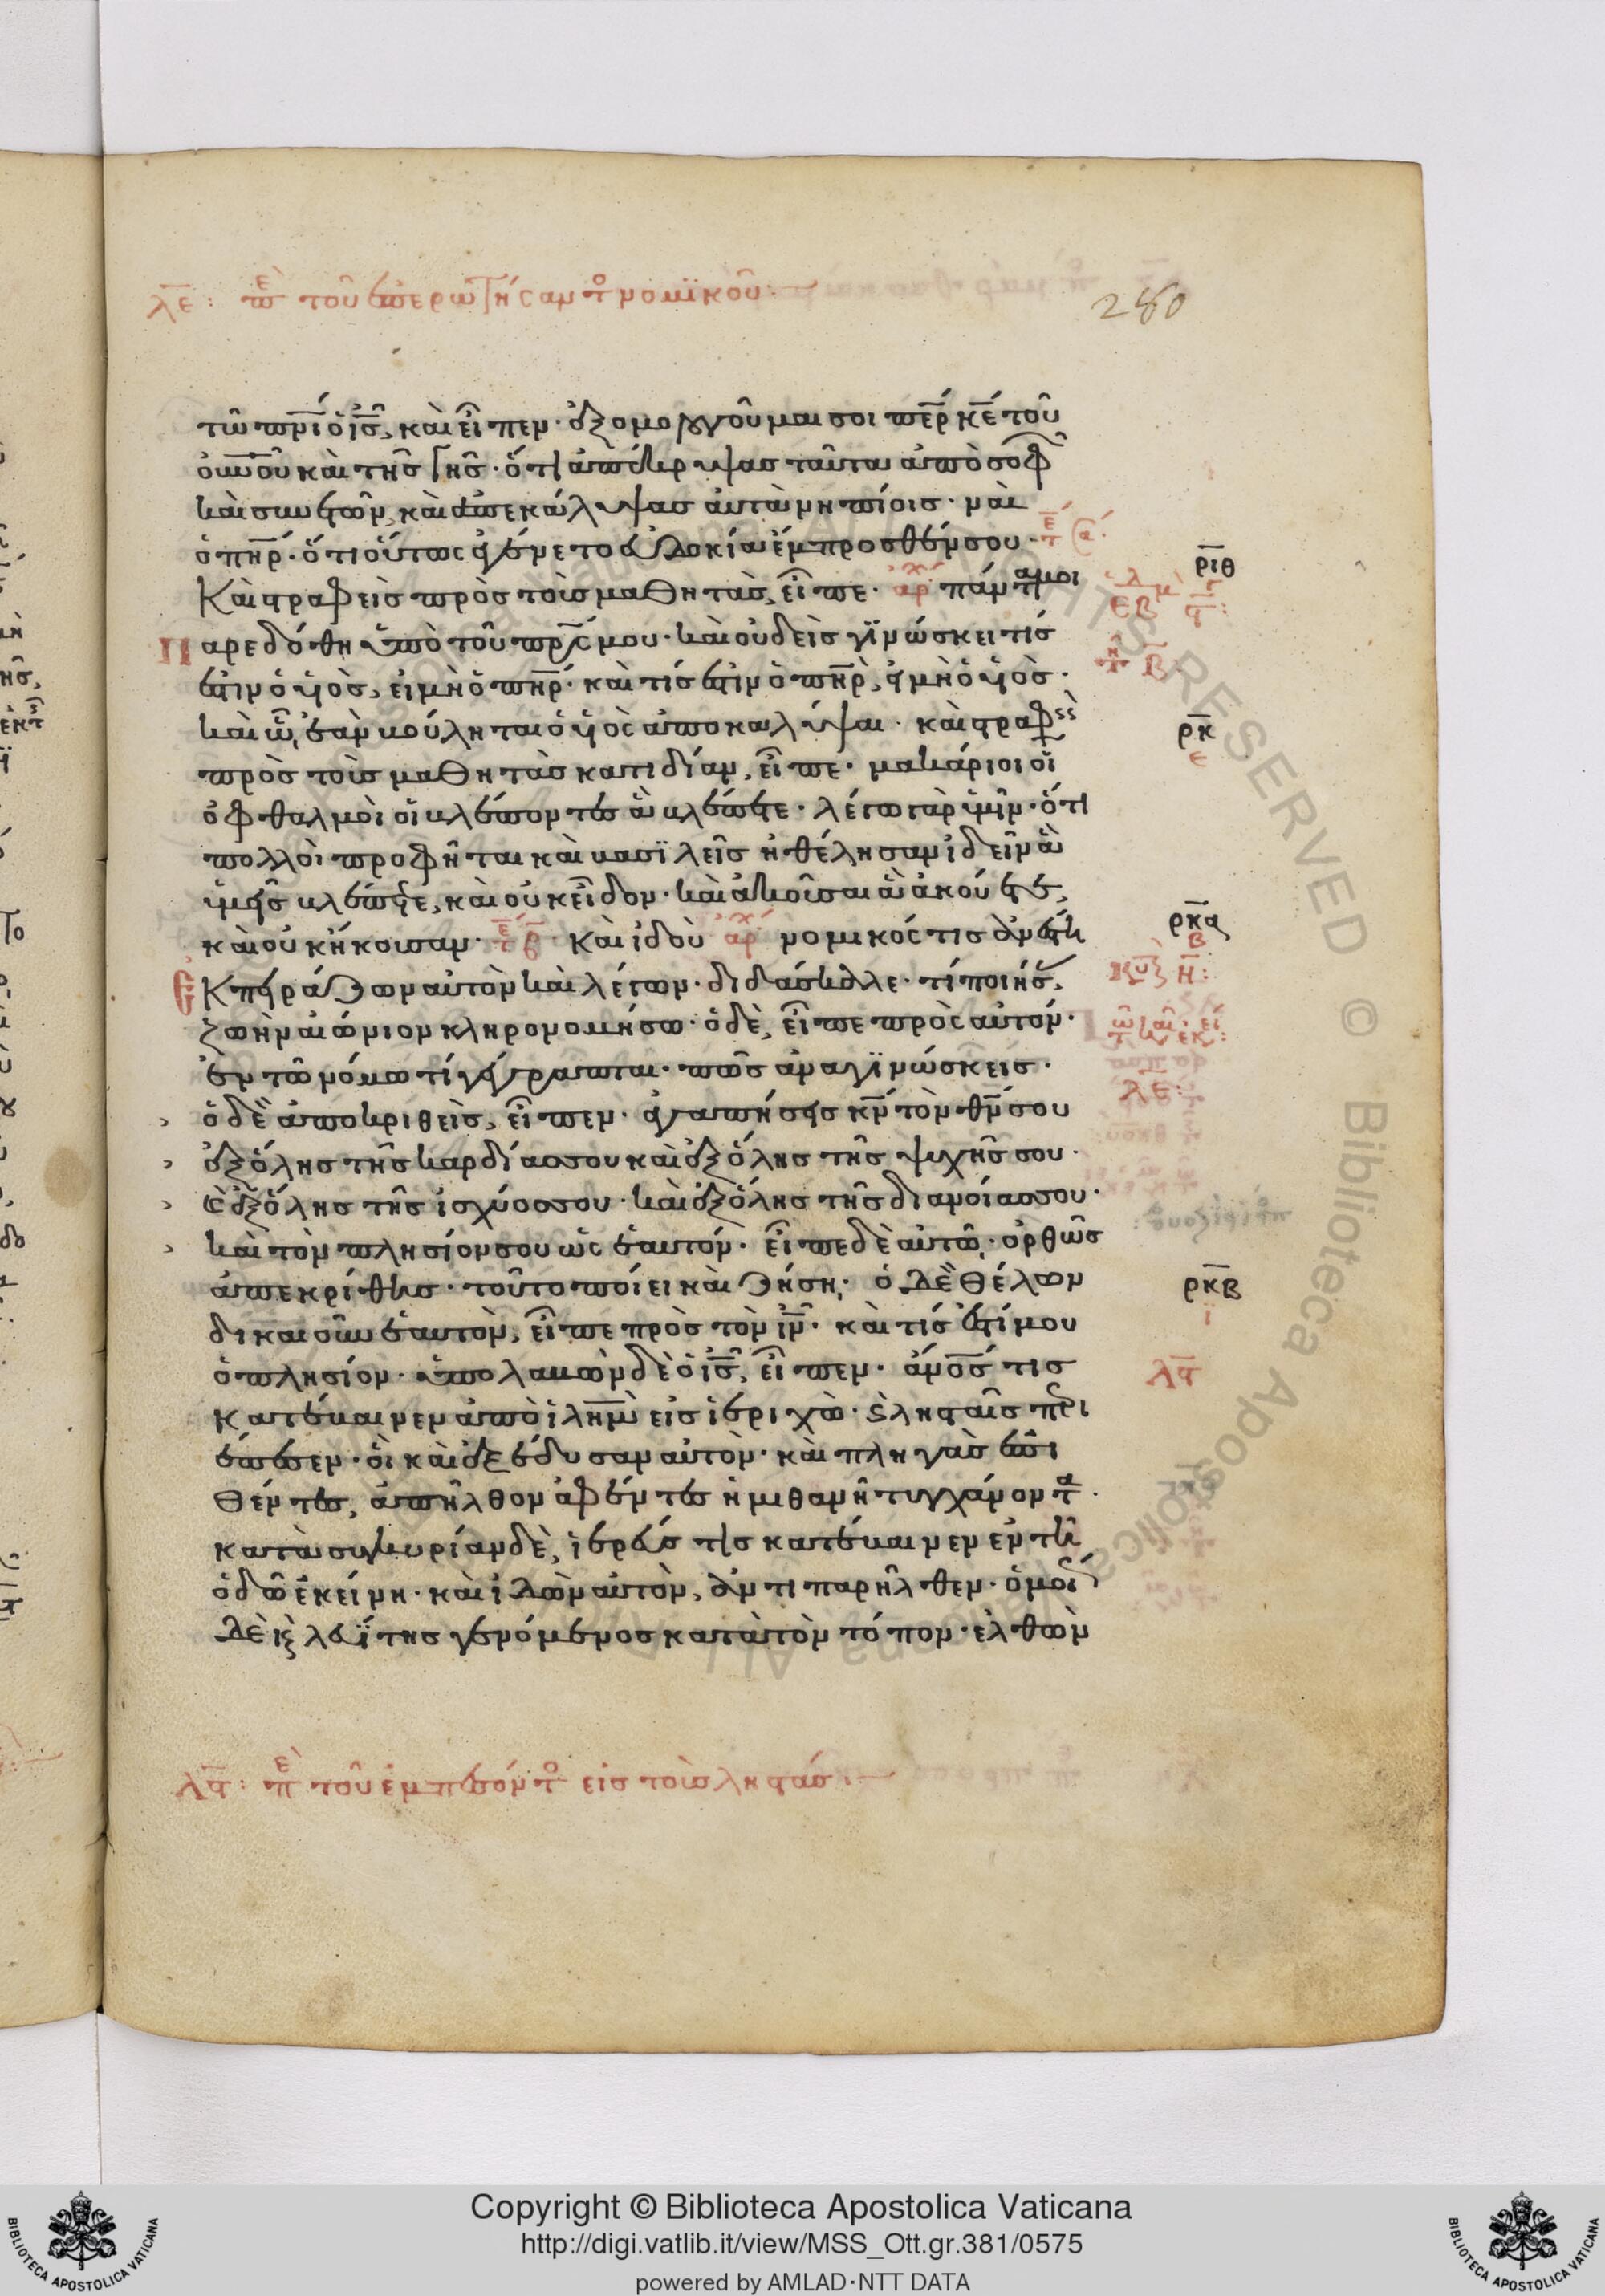 λε: πε τοῦ ἐπερωτήσαντο νομϊκοῦ:
280
τῶ πνι ὁ ις, καὶ εἶπεν· ἐξομολογοῦμαι σοι περ κε τοῦ
οὐνοῦ καὶ τῆς γῆς· ὅτι ἀπέκρυψας ταῦτα ἀπὸ σοφ
καὶ συνετῶν, καὶ ἀπεκάλυψας αὐτὰ νηπίοις· ναὶ
ὁ πηρ· ὅτι οὕτως ἐγένετο εὐδοκία ἔμπροσθέν σου· τε α
Καὶ στραφεὶς πρὸς τοὺς μαθητὰς, εἶπε· ἀρχ πάντα μοι
Παρεδόθη ὑπὸ τοῦ πρς μου· καὶ οὐδεὶς γϊνώσκει τίς
ἐστιν ὁ υἱὸς, εἰ μὴ ὁ πηρ· καὶ τίς ἐστιν ὁ πηρ, εἰ μὴ ὁ υἱὸς·
καὶ ὧ, ἐὰν βούληται ὁ υἱὸς ἀποκαλύψαι· καὶ στραφεὶς
πρὸς τοὺς μαθητὰς κατιδίαν, εἶπε· μακάριοι οἱ
ὀφθαλμοὶ οἱ βλέποντες ἃ βλέπετε· λέγω γὰρ ὑμῖν· ὅτι
πολλοὶ προφῆται καὶ βασϊλεῖς ἠθέλησαν ἰδεῖν ἃ
ὑμεῖς βλέπετε, καὶ οὐκ εἶδον· καὶ ἀκοῦσαι ἃ ἀκούετε,
καὶ οὐκ ἤκουσαν· τε β Καὶ ἰδοὺ ἀρχ νομικός τις ἀνέστη
Ἐκπειράζων αὐτὸν καὶ λέγων· διδάσκαλε· τί ποιήσας,
ζωὴν αἰώνιον κληρονομήσω· ὁ δὲ, εἶπε πρὸς αὐτόν·
ἐν τῶ νόμω τί γέγραπται· πῶς ἀναγϊνώσκεις·
ὁ δὲ ἀποκριθεὶς, εἶπεν· ἀγαπήσεις κν τὸν θν σου
ἐξ ὅλης τῆς καρδίας σου καὶ ἐξ ὅλης τῆς ψυχῆς σου·
καὶ ἐξ ὅλης τῆς ἰσχύος σου· καὶ ἐξ ὅλης τῆς διανοίας σου·
καὶ τὸν πλησίον σου ὡς ἑαυτόν· εἶπε δὲ αὐτῶ· ὀρθῶς
ἀπεκρίθης· τοῦτο ποίει καὶ ζήση· ὁ δὲ θέλων
δικαιοῦν ἑαυτὸν, εἶπε πρὸς τὸν ιν· καὶ τίς ἐστί μου
ὁ πλησίον· ὑπολαβὼν δὲ ὁ ις, εἶπεν· ἄνος τις
κατέβαινεν ἀπὸ ιλημ εἰς ἱεριχὼ· ἐ λησταῖς περι
έπεσεν· οἳ καὶ ἐξέδυσαν αὐτὸν· καὶ πληγὰς ἐπι
θέντες, ἀπῆλθον ἀφέντες ἡμιθανῆ τυγχάνοντα·
κατὰ συγκυρίαν δὲ, ἱερεύς τις κατέβαινεν ἐν τῆ
ὁδῶ ἐκείνη· καὶ ἰδὼν αὐτὸν, ἀντιπαρῆλθεν· ὁμοί
δὲ καὶ λευΐτης γενόμενος κατὰ τὸν τόπον· ἐλθὼν
ριθ
ρκ
ε
ρκα
β
κυ η:
λε:
ρκβ
ι
λς
λς: πε τοῦ ἐμπεσόντο εἰς τοὺς ληστάς:
Copyright © Biblioteca Apostolica Vaticana
http://digi.vatlib.it/view/MSS_Ott.gr.381/0575
powered by AMLAD·NTT DATA